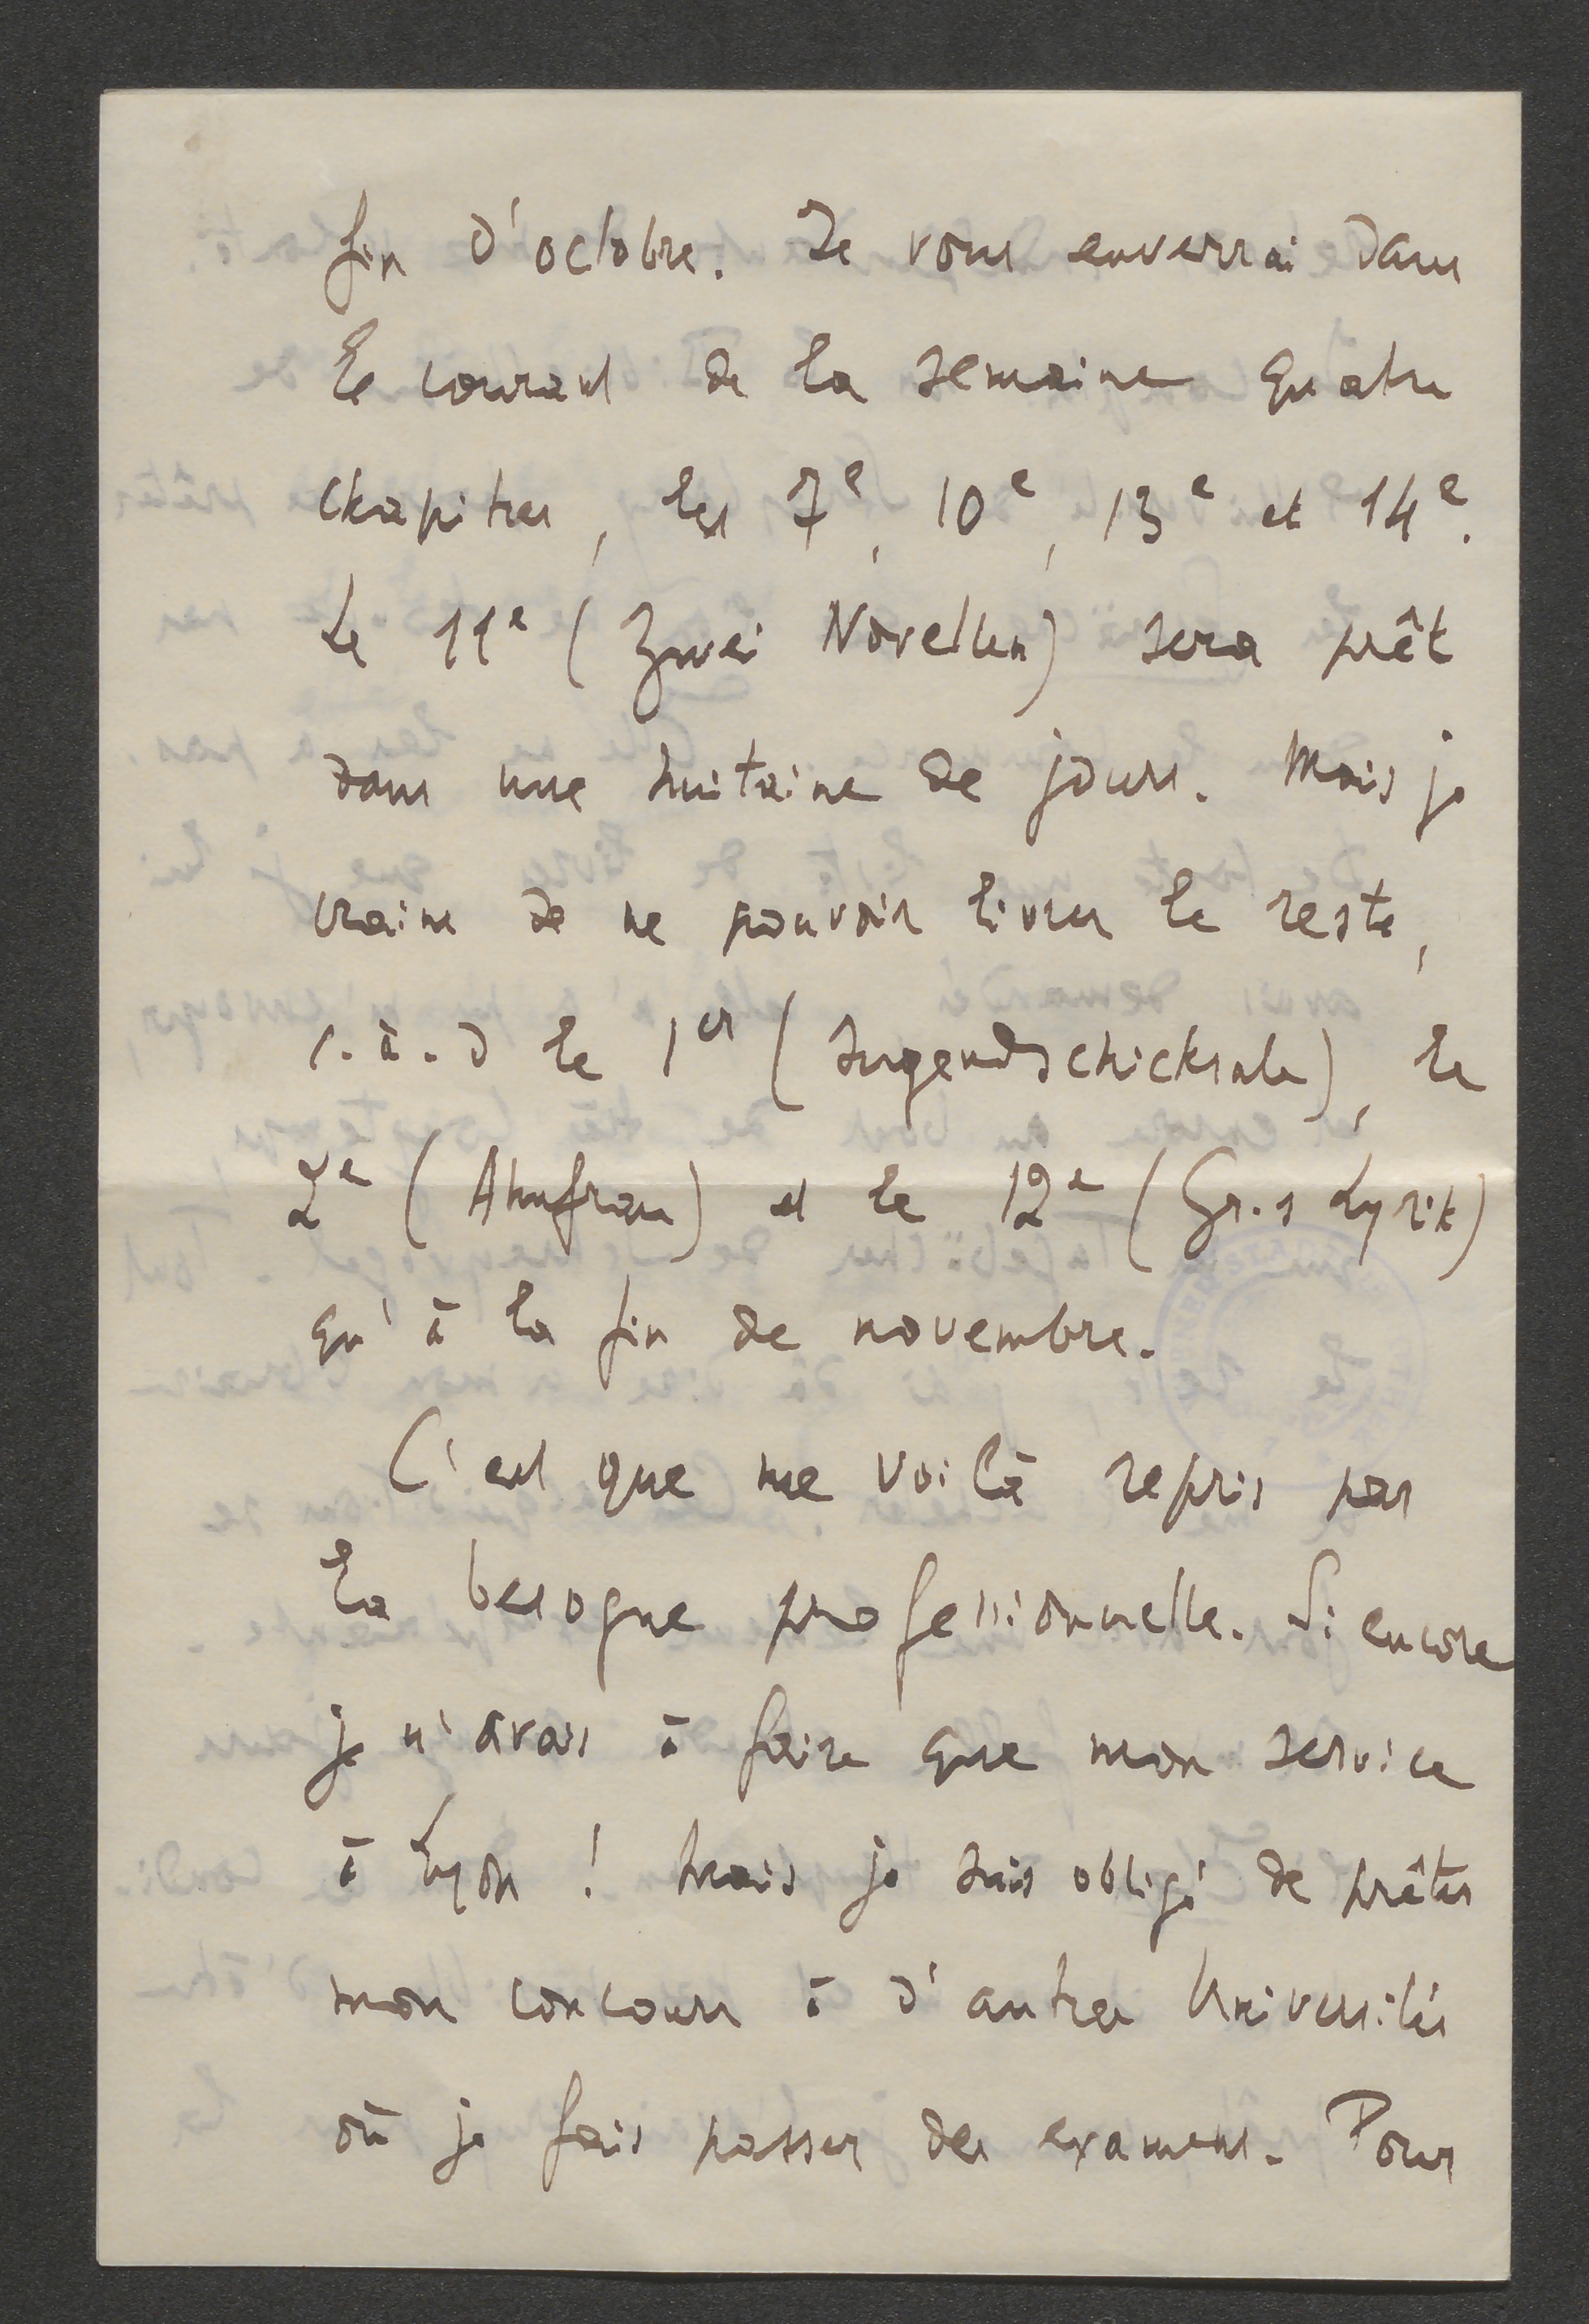 fin d'octobre. Je vous enverrai dans
le courant de la semaine quatre
chapitres, les 7e, 10e, 13e et 14e.
Le 11e (Zwei Novellen) sera prêt
dans une huitaine de jours. Mais je
crains de ne pouvoir livrer le reste,
c.-à-d le 1er (Jugendschicksale), le
2e (Ahnfrau) et le 12e (Gr.s Lyrik)
qu'à la fin de novembre.
C'est que me voilà repris par
la besogne professionnelle. Si encore
je n'avais à faire que mon service
à Lyon ! Mais je suis obligé de prêter
mon concours à d'autres Universités
où je fais passer des examens. Pour